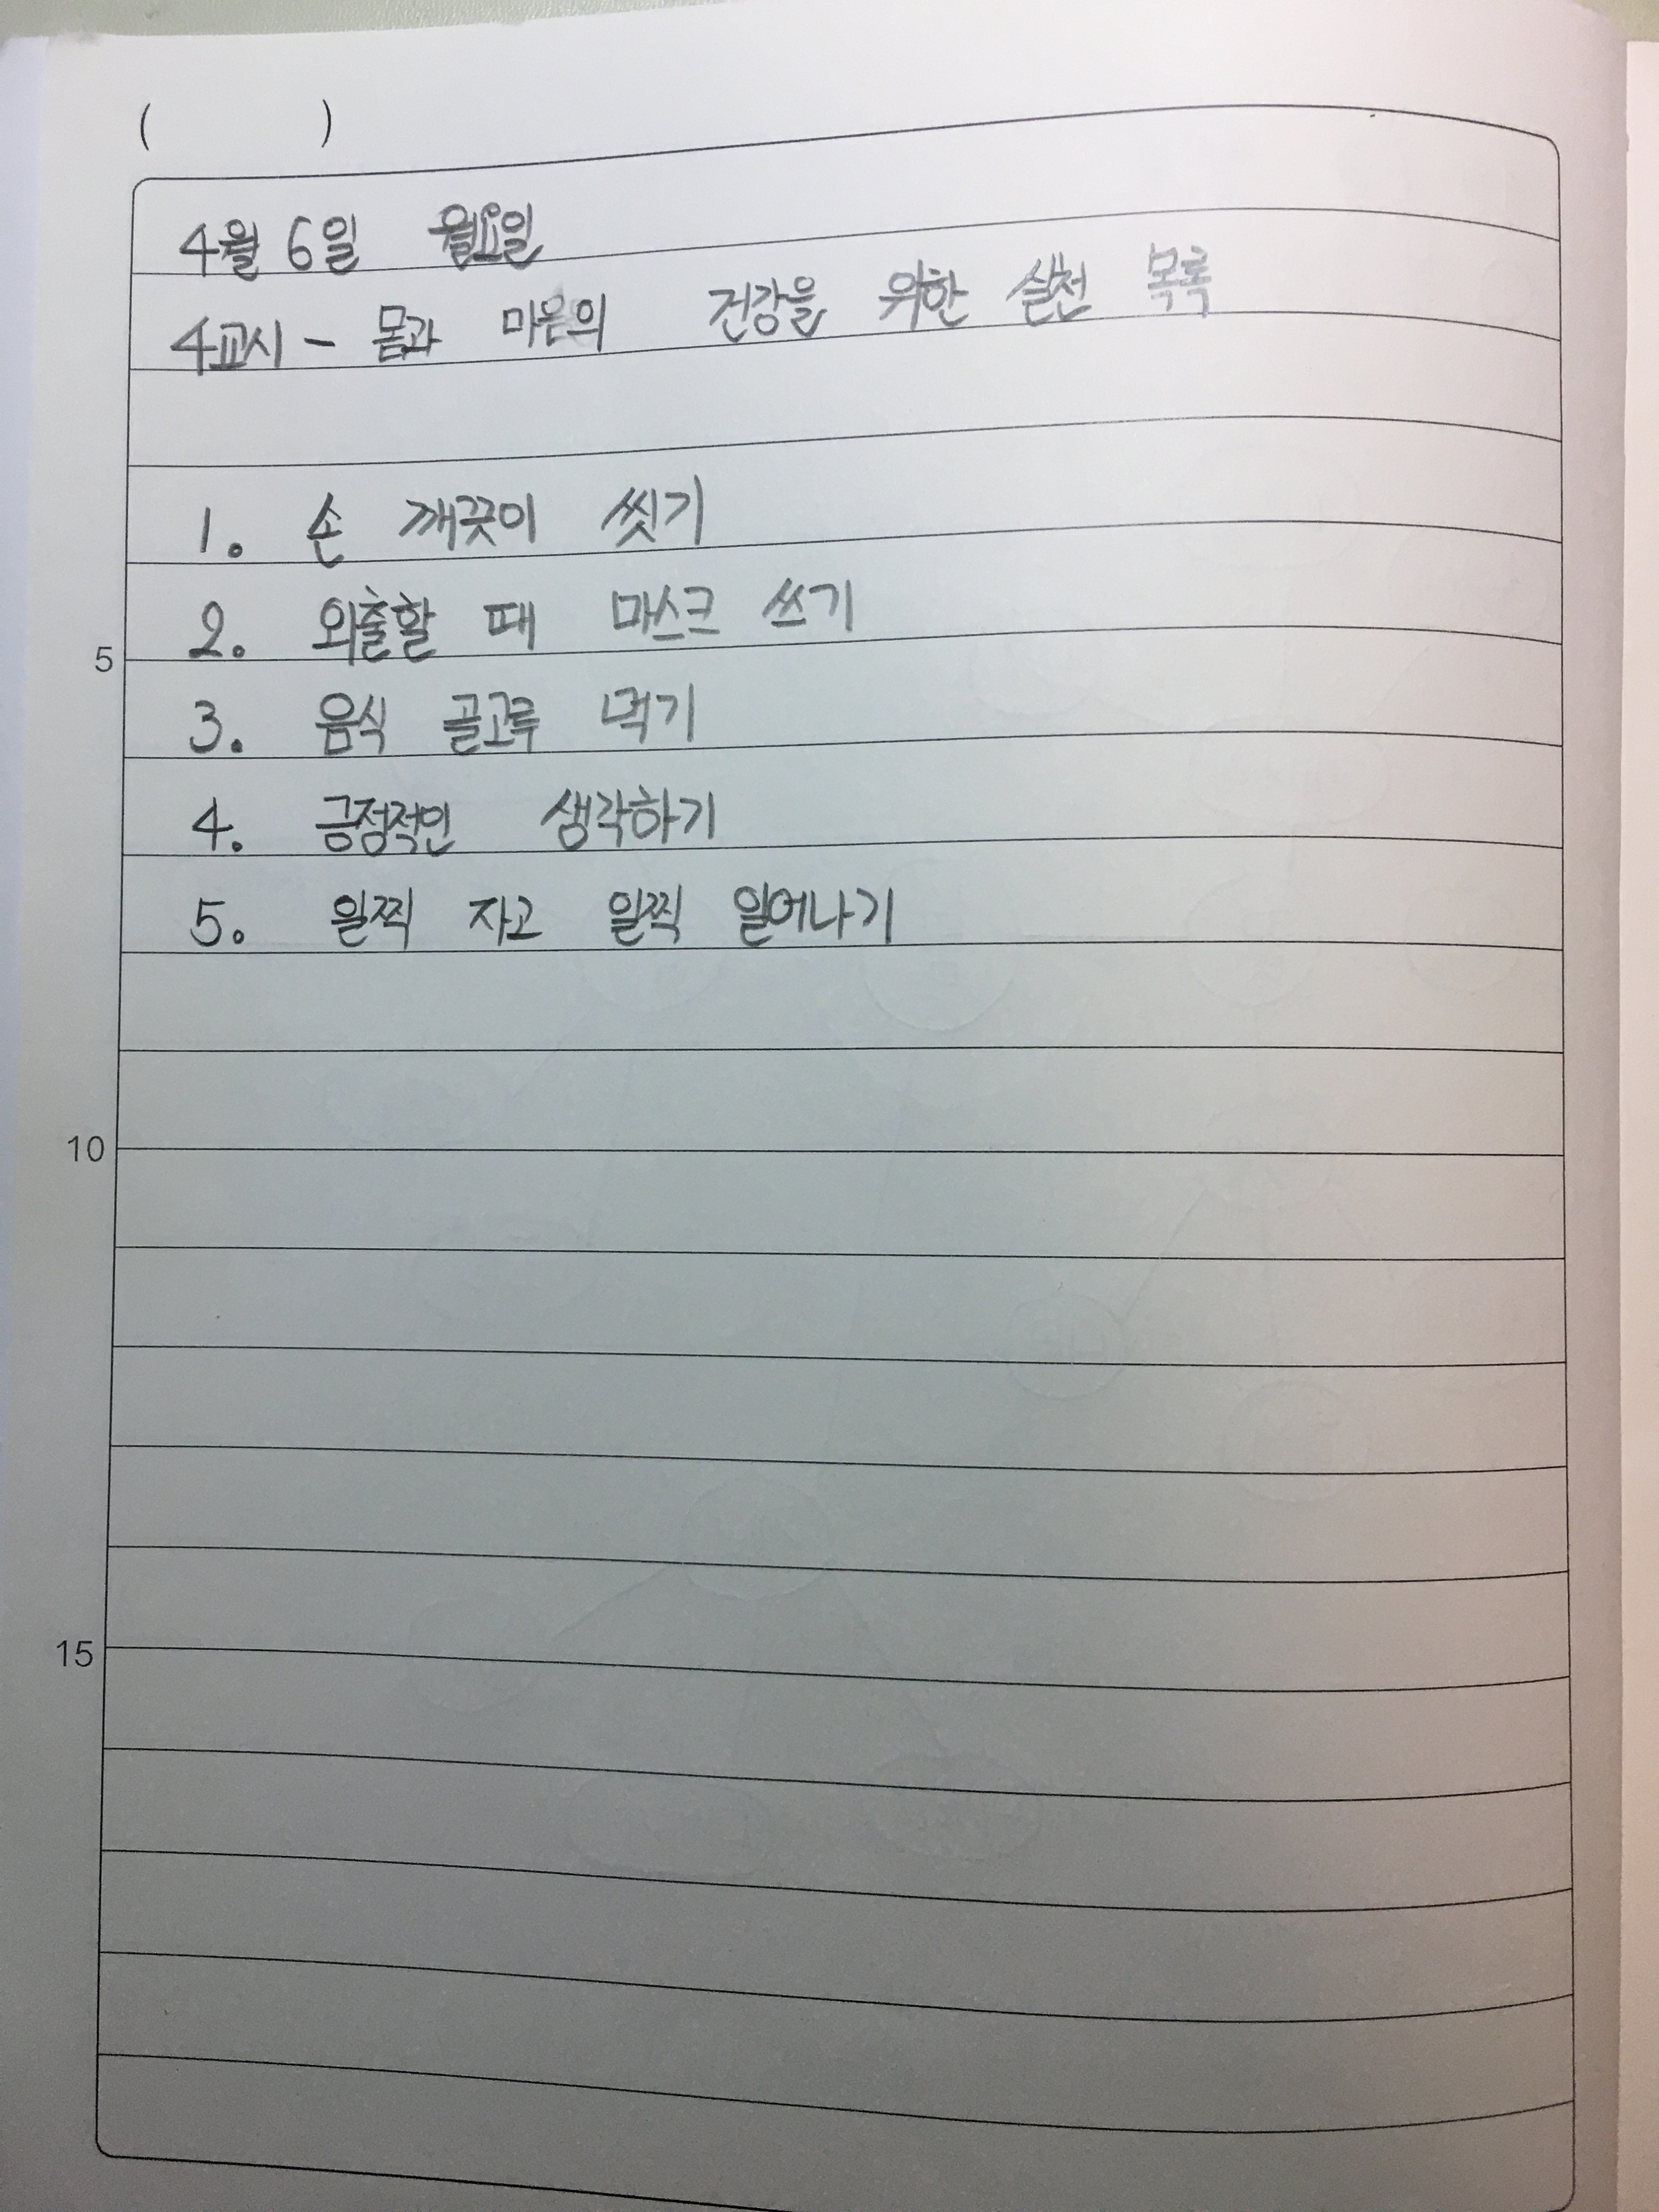 (          )
4월 6일 월요일
4교시 - 몸과 마음의 건강을 위한 실천 목록
1. 손 깨끗이 씻기
2. 외출할 때 마스크 쓰기
5
3. 음식 골고루 먹기
4. 긍정적인 생각하기
5. 일찍 자고 일찍 일어나기
10
15